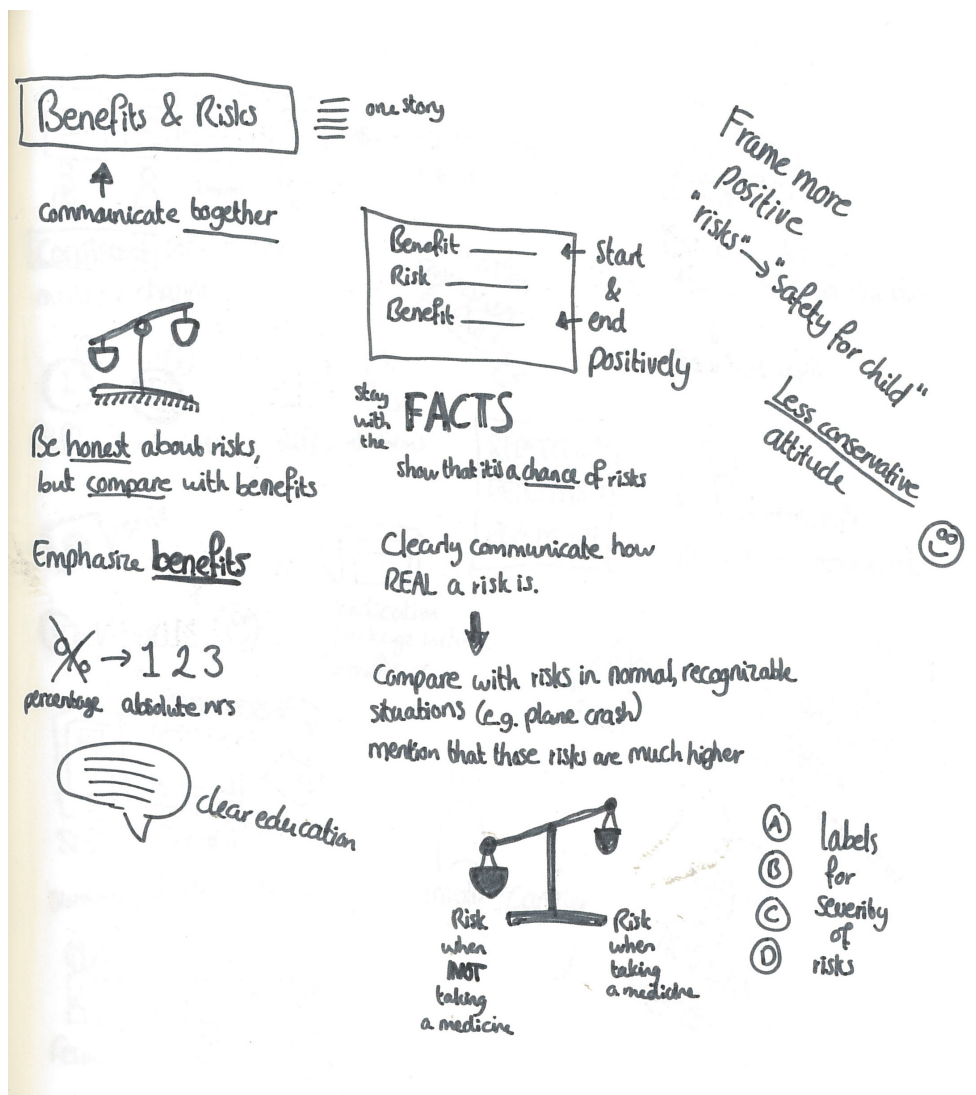 Benefits & Risks
one story
communicate together
Be honest about risks,
but compare with benefits
Emphasize benefits
% → 1 2 3
percentage absolute nrs
clear education
Benefit
Risk
Benefit
Start
&
end
positively
stay
with
the
FACTS
show that it is a chance of risks
Clearly communicate how
REAL a risk is.
Compare with risks in normal, recognizable
situations (e.g. plane crash)
mention that those risks are much higher
Risk
when
NOT
taking
a medicine
Risk
when
taking
a medicine
Frame more
positive
"risks" → "safety for child"
Less conservative
attitude
A
B
C
D
labels
for
severity
of
risks